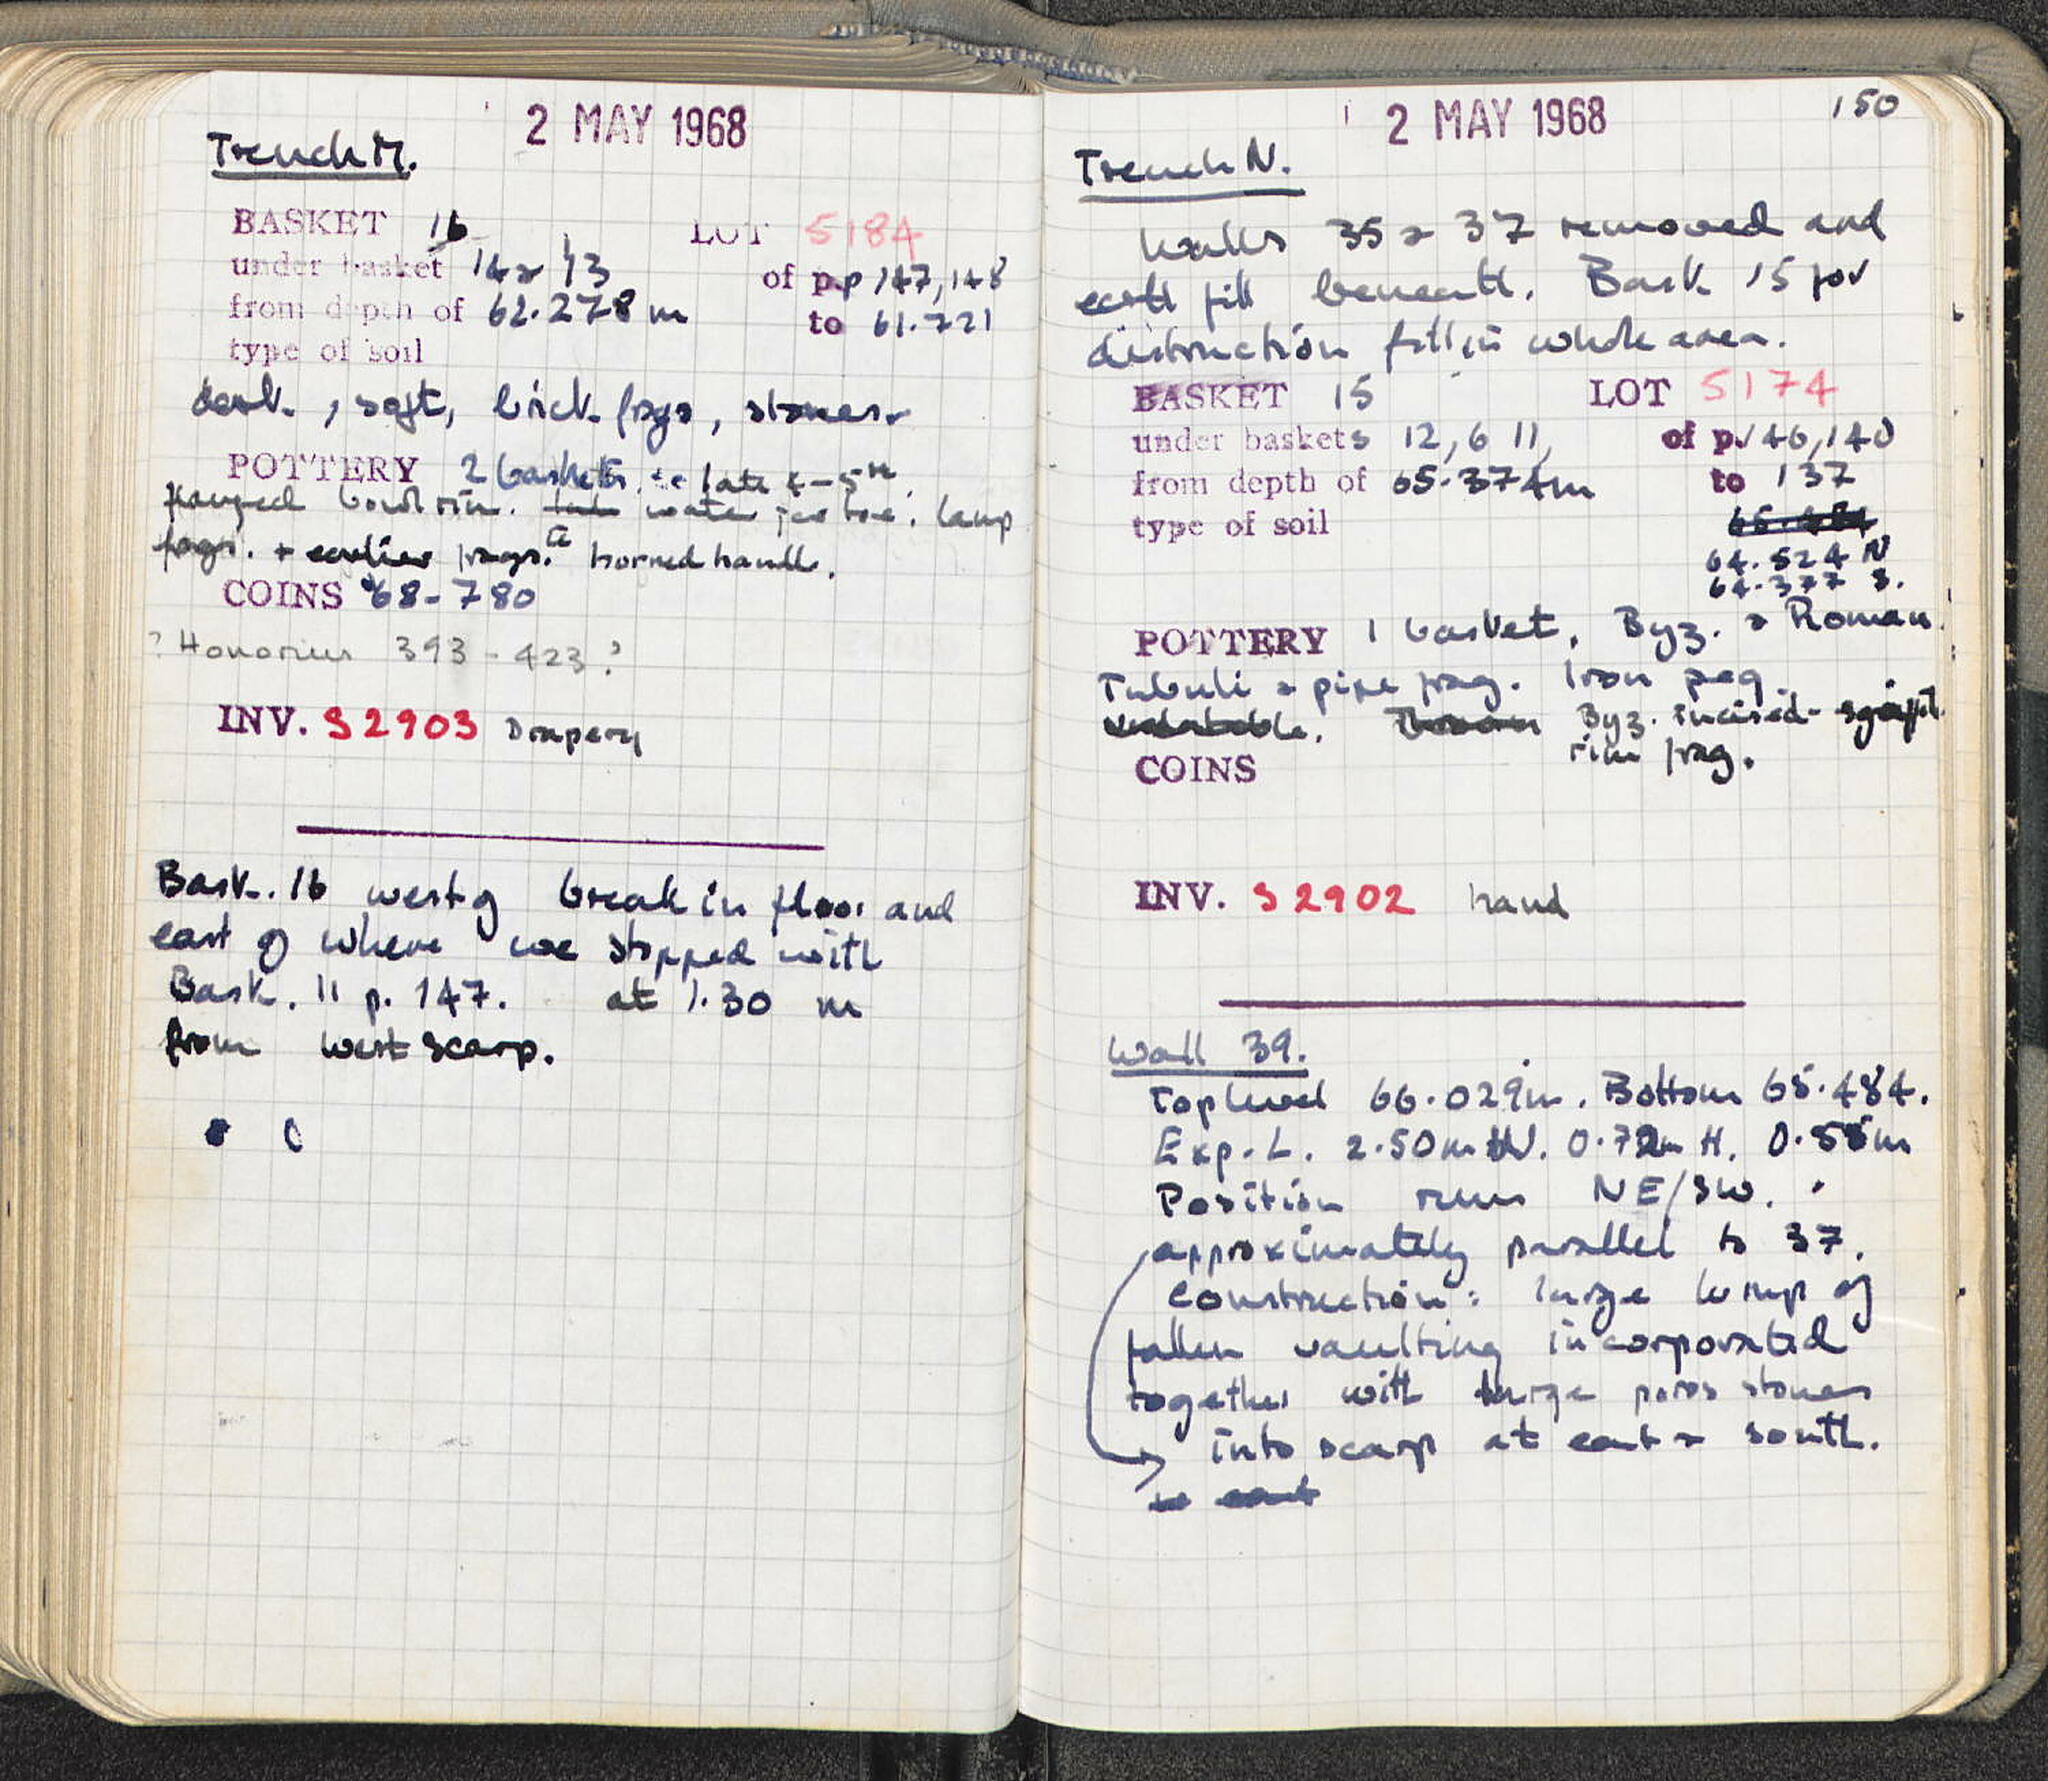 2 MAY 1968
Trench M.
BASKET 16 LOT 5184
under basket 14 & 13 of p.p 147, 148
from depth of 62.278 m to 61.721
type of soil
dark, soft, brick frags, stones.
POTTERY 2 baskets. late 4-5th
flanged bowl rim. water jar toe. lamp
frags. + earlier frags. horned handle.
COINS 68-780
? Honorius 393-423?
INV. S2903 Drapery
Bask. 16 west of break in floor and
east of where we stopped with
Bask. 11 p. 147. at 1.30 m
from west scarp.
2 MAY 1968 150
Trench N.
Walls 35 & 37 removed and
earth fill beneath. Bask 15 for
distruction fill in whole area.
BASKET 15 LOT 5174
under baskets 12, 6 11, of p. 146, 140
from depth of 65.374m to 137
type of soil 65.484
64.524 N
64.377 S.
POTTERY 1 basket, Byz. & Roman.
Tubuli & pipe frag. Iron peg
Byz. incised-sgraffit.
rim frag.
COINS
INV. S2902 hand
Wall 39.
Top level 66.029m. Bottom 65.484.
Exp. L. 2.50m W. 0.72m H. 0.55m
Position runs NE/SW.
approximately parallel to 37.
Construction: large lump of
fallen vaulting incorporated
together with large poros stones
into scarp at east & south.
to east